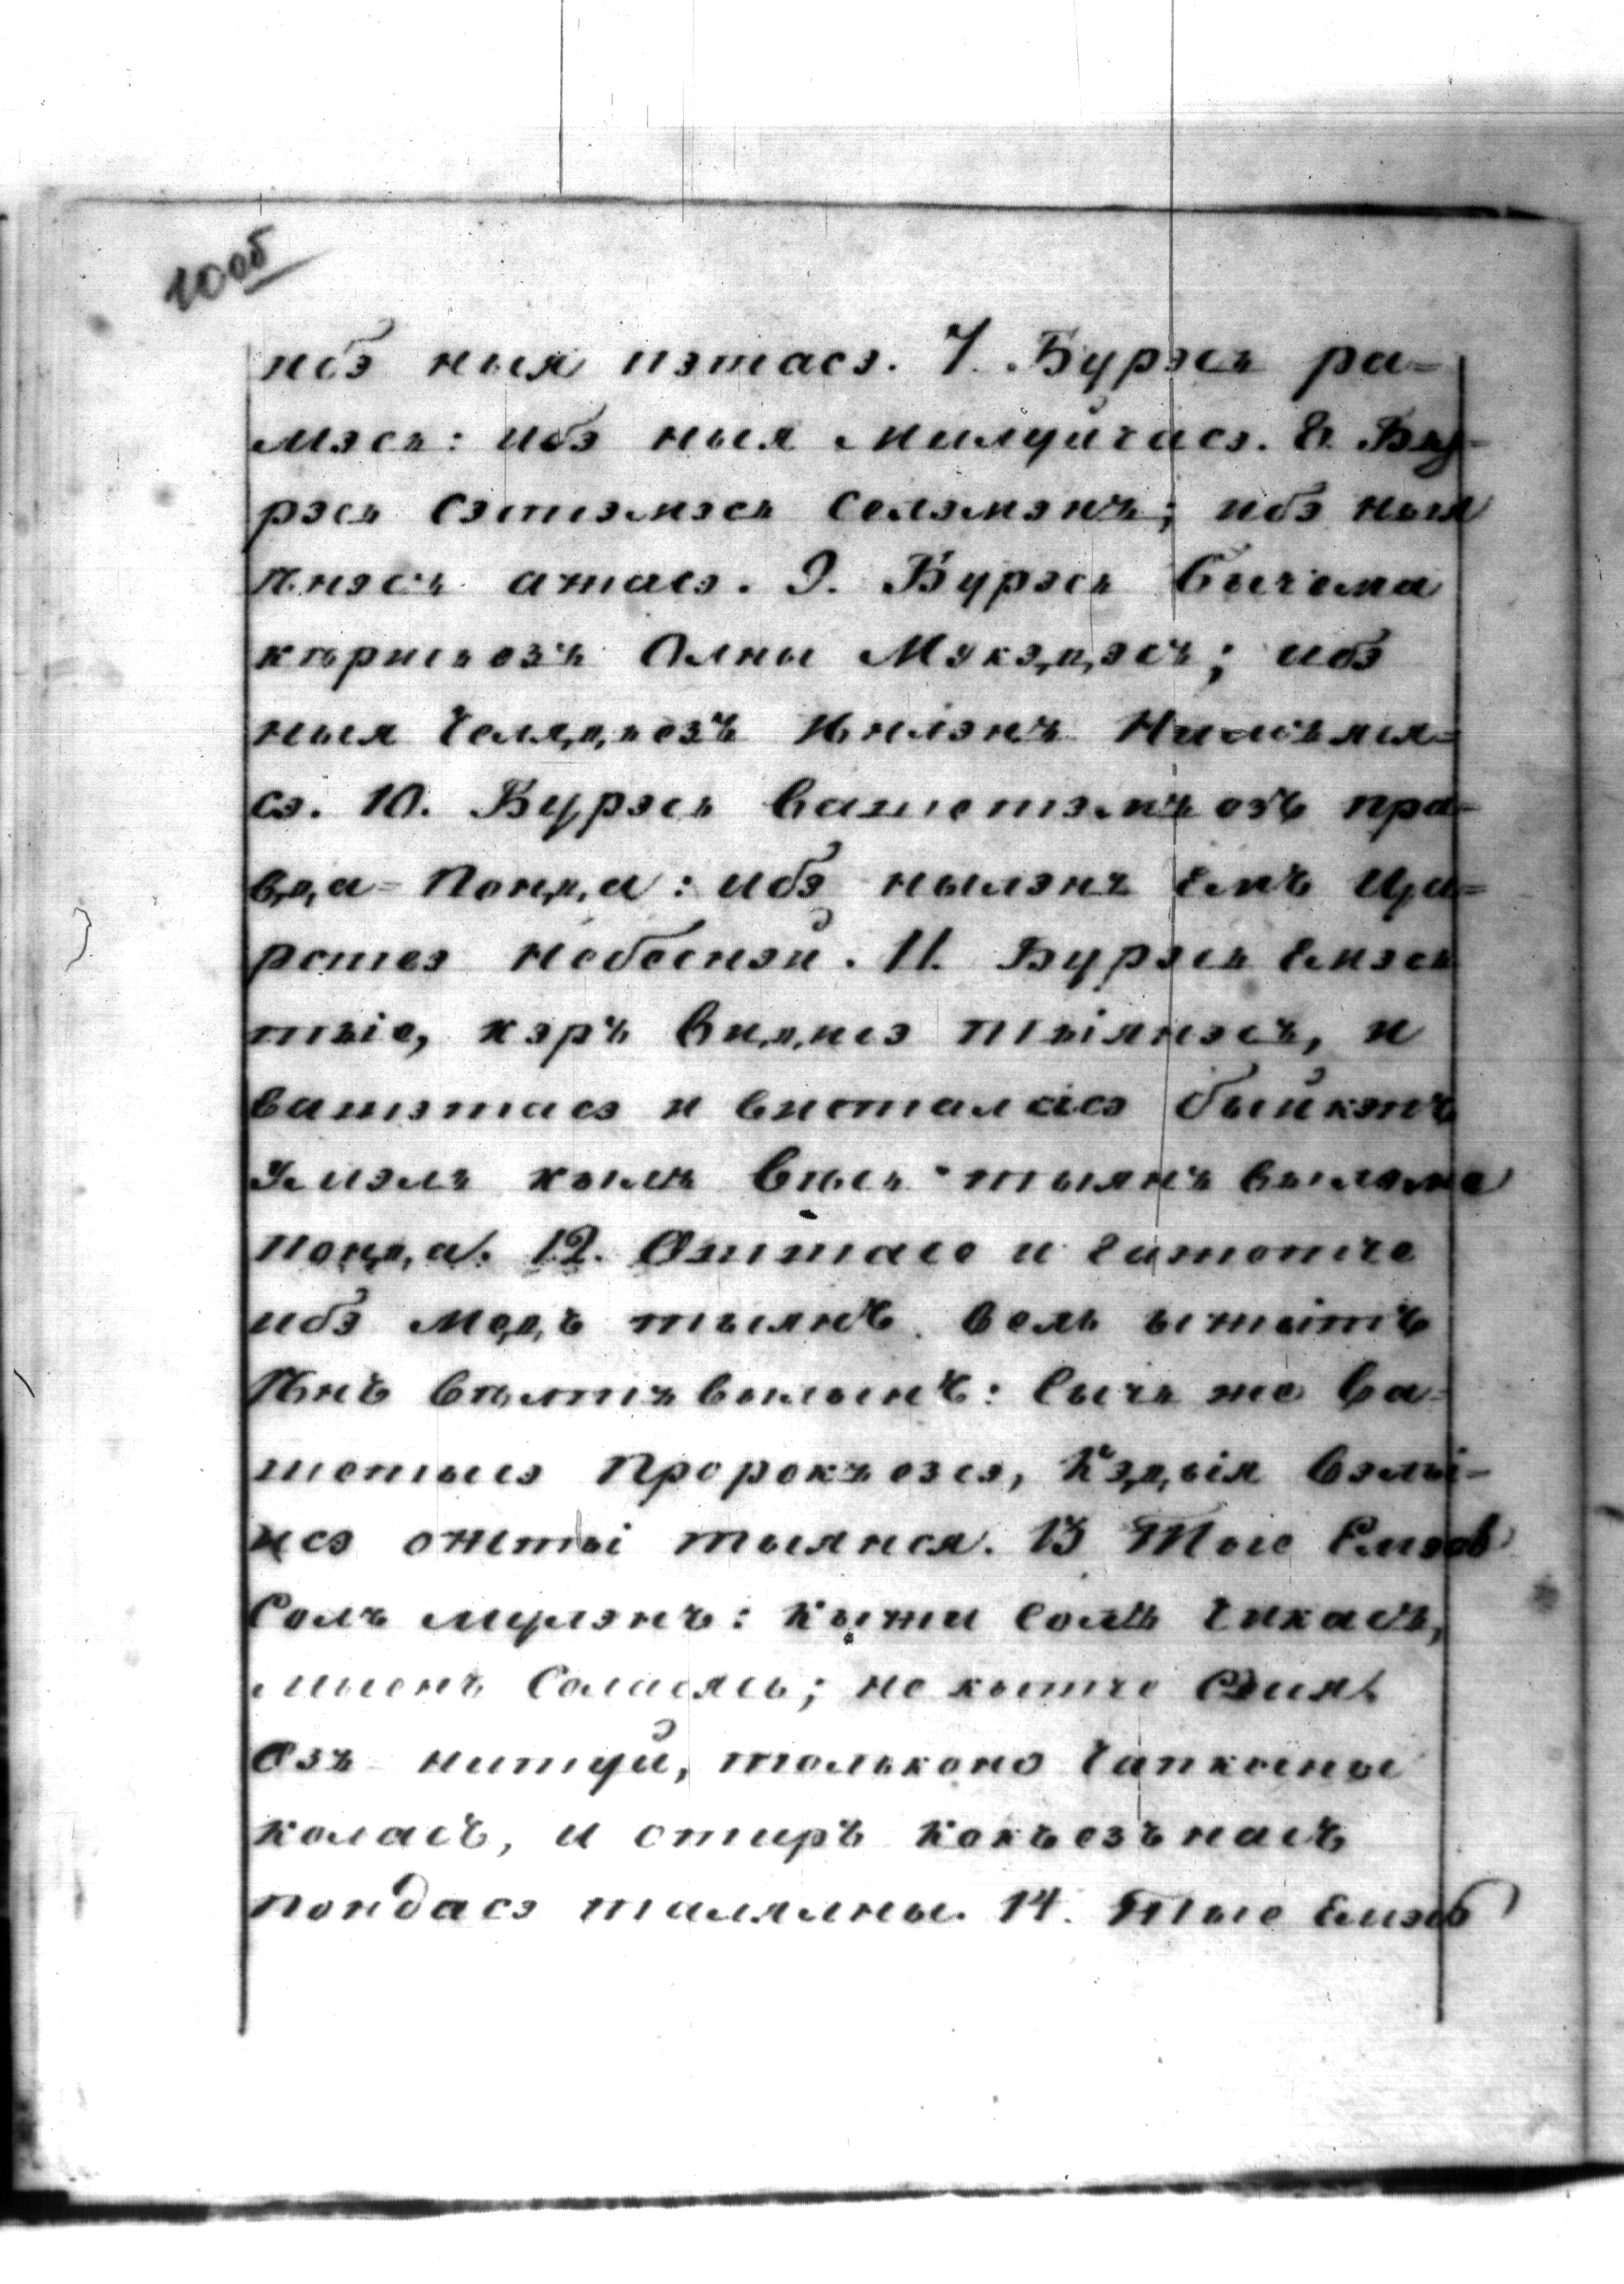 10 об
ибэ ныя пэтасэ. 7. Бурэсь ра=
мэсь: ибэ ныя милуйтасэ. 8. Бу-
рэсь сэтэмэсь селэмэнъ; ибэ ныя
Їенэсъ ажасэ. 9. Бурэсь бычема
кѣрисьезъ Олны Мукэдэсъ; ибэ
ныя челядьезъ Иенлэнъ Нимсьяля=
сэ. 10. Бурэсь вашетэмъ езъ пра-
вда=понда: ибэ нылэнъ Емъ Ца=
рствэ небеснэй. 11. Бурэсь Емэсь
тыіе, кэръ видисэ тыіянэсъ, и
вашэтасэ и висталасэ быйкэнъ
умэль кылъ высь тыянъ вылэме
понда. 12. Ошшасе и гажетче
ибэ медъ тыянъ вель ыжытъ
Їенъ вѣлтъ вылынъ: сычь же ва=
шетысэ Пророкъезсэ, Кэдыя вэлы-
исэ ожты тыянся. 13 Тые Емэсь
Солъ мулэнъ: кыжи солъ чикасъ,
мыенъ Соласясь; не кытче сыя
Озъ нитуй, тольконо чапкыны
коласъ, и отиръ кокъезънасъ
пондасэ талялны. 14. Тые Емэсь